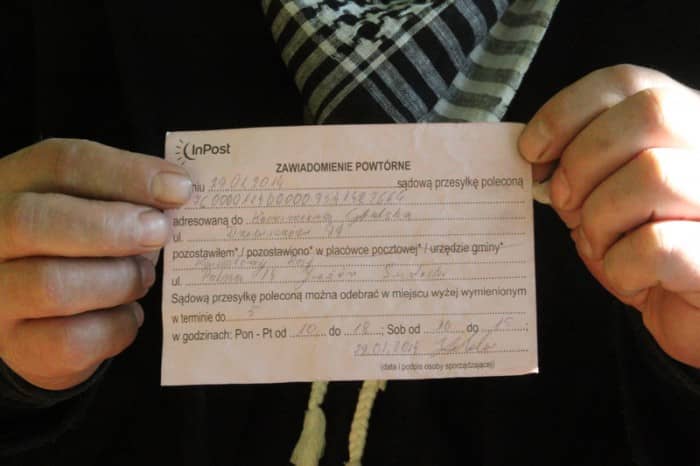 InPost
ZAWIADOMIENIE POWTÓRNE
niu 29.01.2014 sądową przesyłkę poleconą
adresowaną do
ul.
pozostawiłem*/ pozostawiono* w placówce pocztowej*/ urzędzie gminy*
ul. Polna
Sądową przesyłkę poleconą można odebrać w miejscu wyżej wymienionym
w terminie do 5
w godzinach: Pon - Pt od 10 do 18; Sob od 10 do 15;
29.01.2014
(data i podpis osoby sporządzającej)